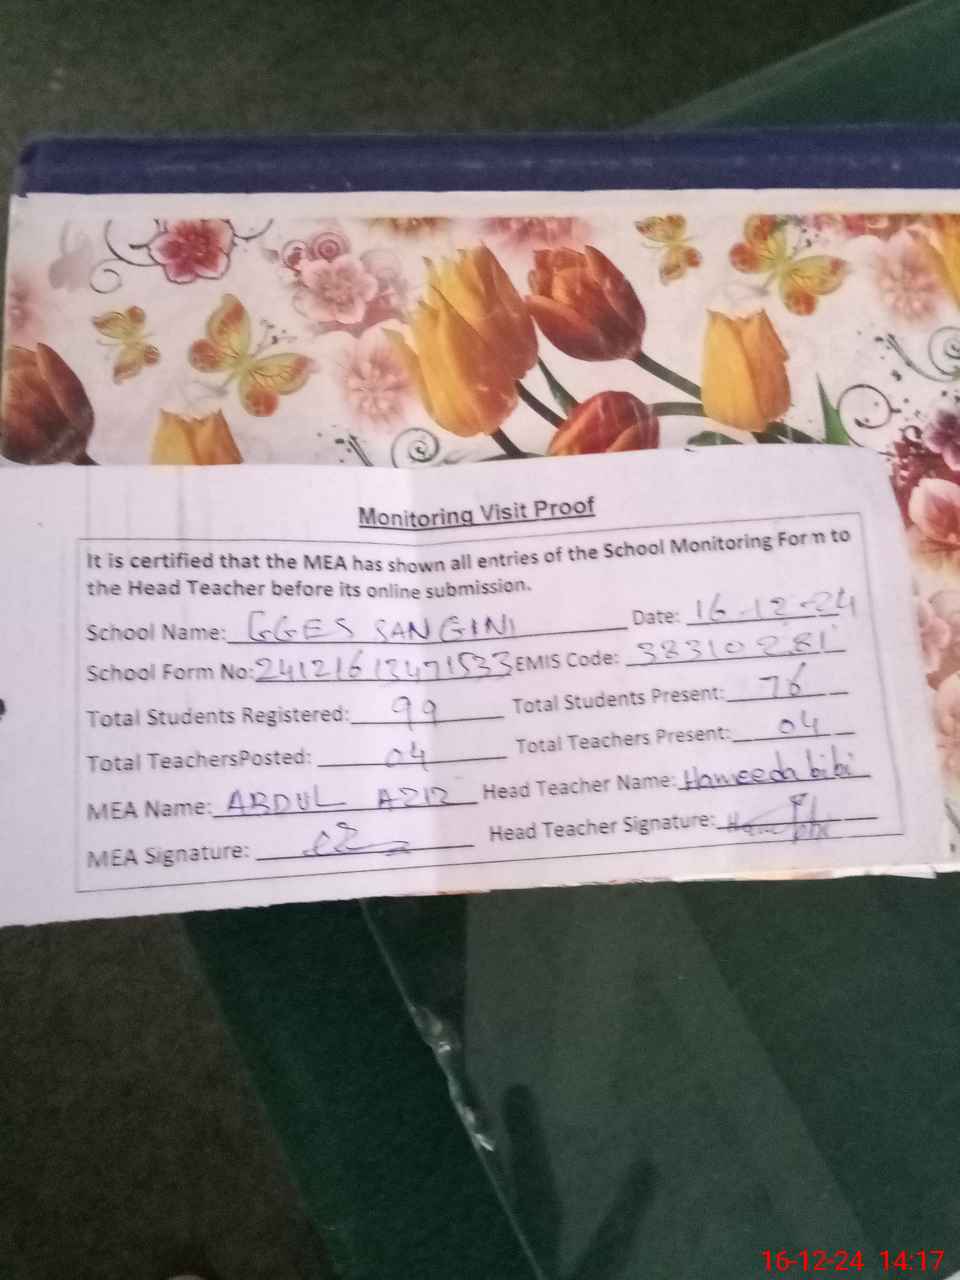 Monitoring Visit Proof
It is certified that the MEA has shown all entries of the School Monitoring Form to
the Head Teacher before its online submission.
School Name: GGES SANGINI Date: 16-12-24
School Form No: 24121612471533 EMIS Code: 38310281
Total Students Registered: 99 Total Students Present: 76
Total TeachersPosted: 04 Total Teachers Present: 04
MEA Name: ABDUL AZIZ Head Teacher Name: Hameeda bibi
MEA Signature: Head Teacher Signature:
16-12-24 14:17